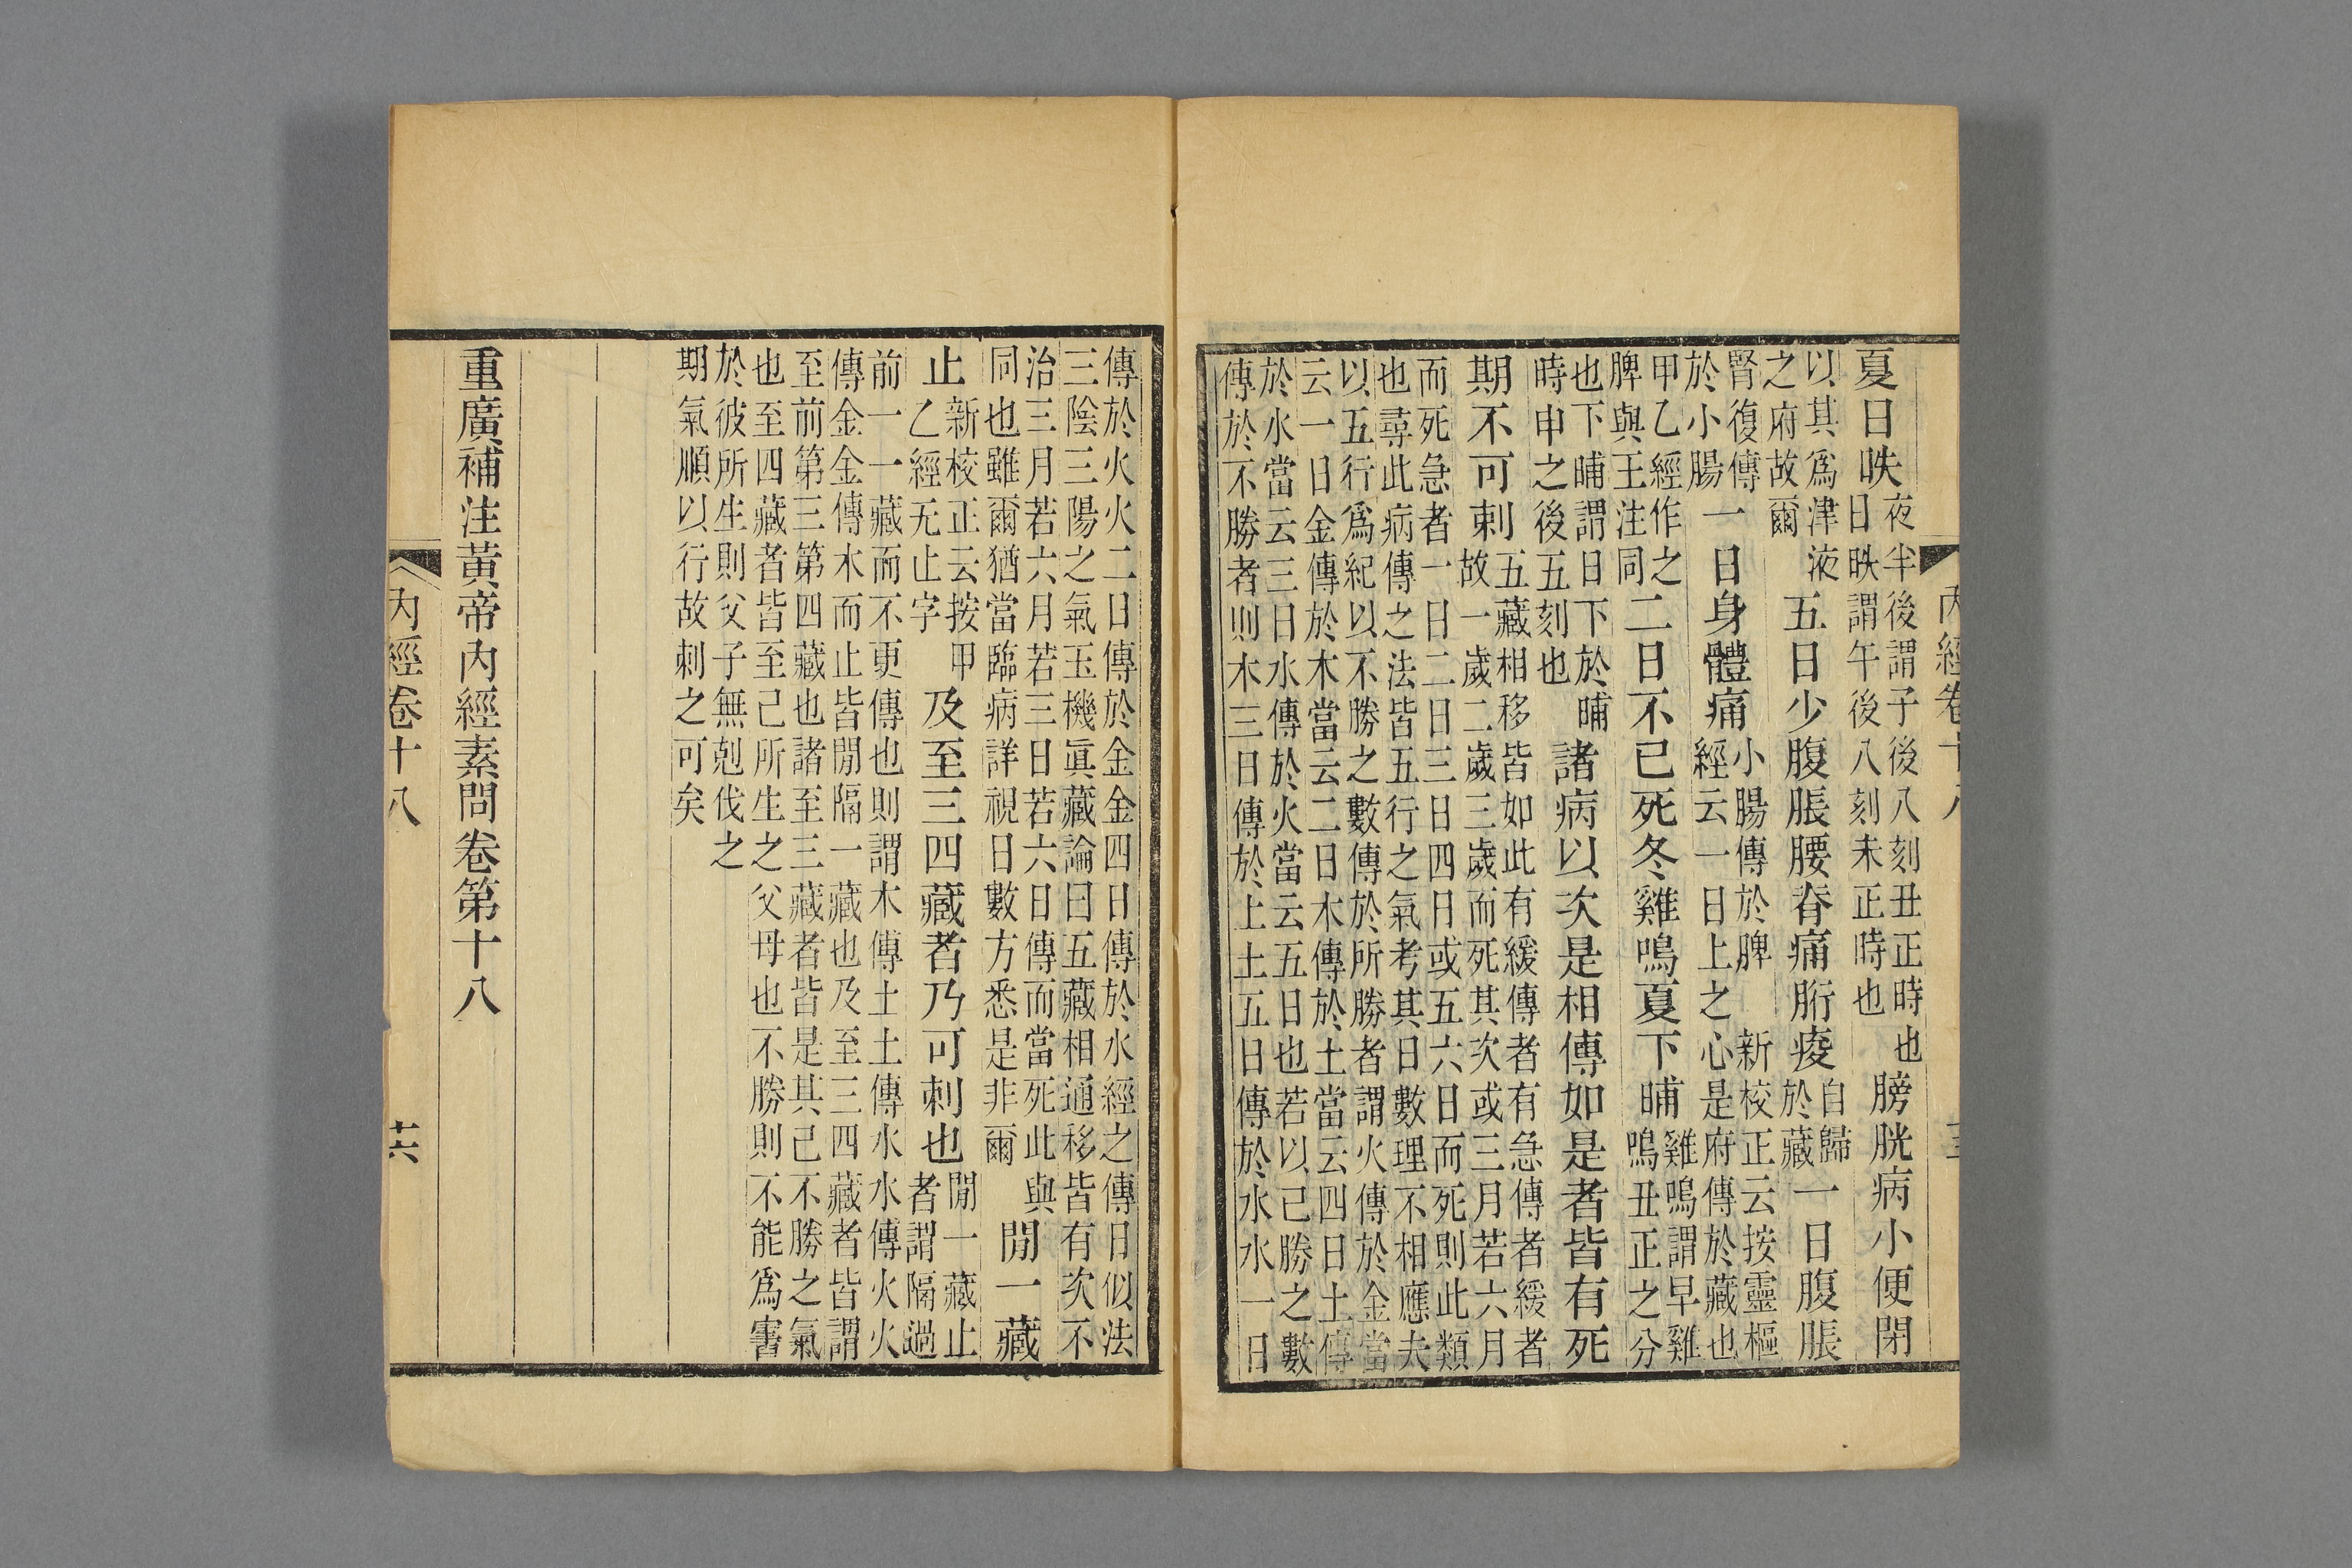 内經卷十八
夏日昳夜半後謂子後八刻丑正時也日昳謂午後八刻未正時也膀胱病小便閉
以其爲津液之府故爾五日少腹脹腰脊痛胻痠自歸於藏一日腹脹
腎復傳於小腸一日身體痛小腸傳於脾 新校正云按靈樞經云一日上之心是府傳於藏也
甲乙經作之脾與王注同二日不已死冬雞鳴夏下晡雞鳴謂早雞鳴丑正之分
也下晡謂日下於晡時申之後五刻也諸病以次是相傳如是者皆有死
期不可刺五藏相移皆如此有緩傳者有急傳者緩者故一歲二歲三歲而死其次或三月若六月
而死急者一日二日三日四日或五六日而死則此類
也尋此病傳之法皆五行之氣考其日數理不相應夫
以五行爲紀以不勝之數傳於所勝者謂火傳於金當
云一日金傳於木當云二日木傳於土當云四日土傳
於水當云三日水傳於火當云五日也若以己勝之數
傳於不勝者則木三日傳於土土五日傳於水水一日
傳於火火二日傳於金金四日傳於水經之傳日似法
三陰三陽之氣玉機眞藏論曰五藏相通移皆有次不
治三月若六月若三日若六日傳而當死此與同也雖爾猶當臨病詳視日數方悉是非爾閒一藏
止新校正云按甲乙經无止字及至三四藏者乃可刺也閒一藏止者謂隔過
前一一藏而不更傳也則謂木傳土土傳水水傳火火
傳金金傳木而止皆閒隔一藏也及至三四藏者皆謂
至前第三第四藏也諸至三藏者皆是其己不勝之氣
也至四藏者皆至己所生之父母也不勝則不能爲害
於彼所生則父子無剋伐之
期氣順以行故刺之可矣
重廣補注黃帝內經素問卷第十八
内經卷十八 十六